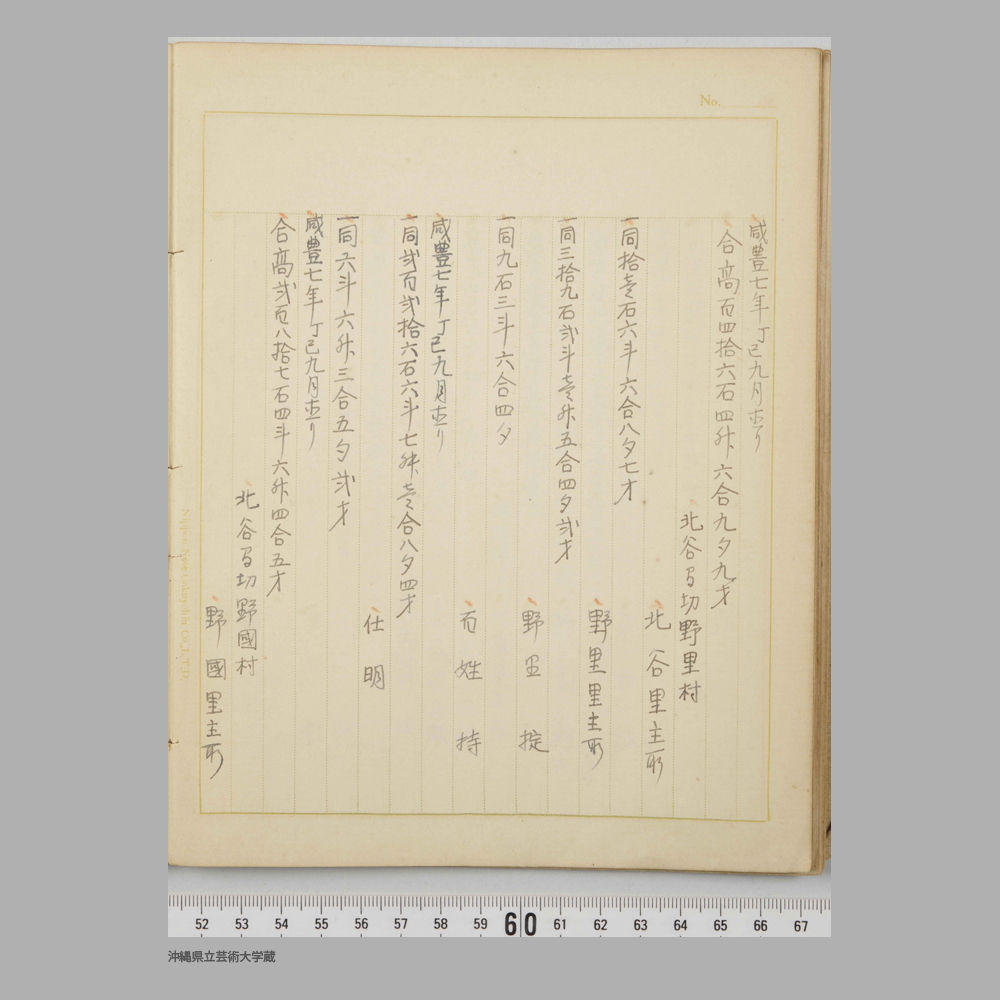 No.
咸豊七年丁巳九月よ里
合高百四拾六石四舛六合九夕九才
北谷間切野里村
北谷里主所
一同拾壱石六斗六合八夕七才
野里里主所
一同三拾九石弐斗壱舛五合四夕弐才
野里掟
一同九石三斗六合四夕
百姓持
咸豊七年丁巳九月よ里
一同弐百弐拾六石六斗七舛壱合八夕四才
仕明
一同六斗六舛三合五夕弐才
咸豊七年丁巳九月よ里
合高弐百八拾七石四斗六舛四合五才
北谷間切野國村
野國里主所
52 53 54 55 56 57 58 59 60 61 62 63 64 65 66 67
沖縄県立芸術大学蔵